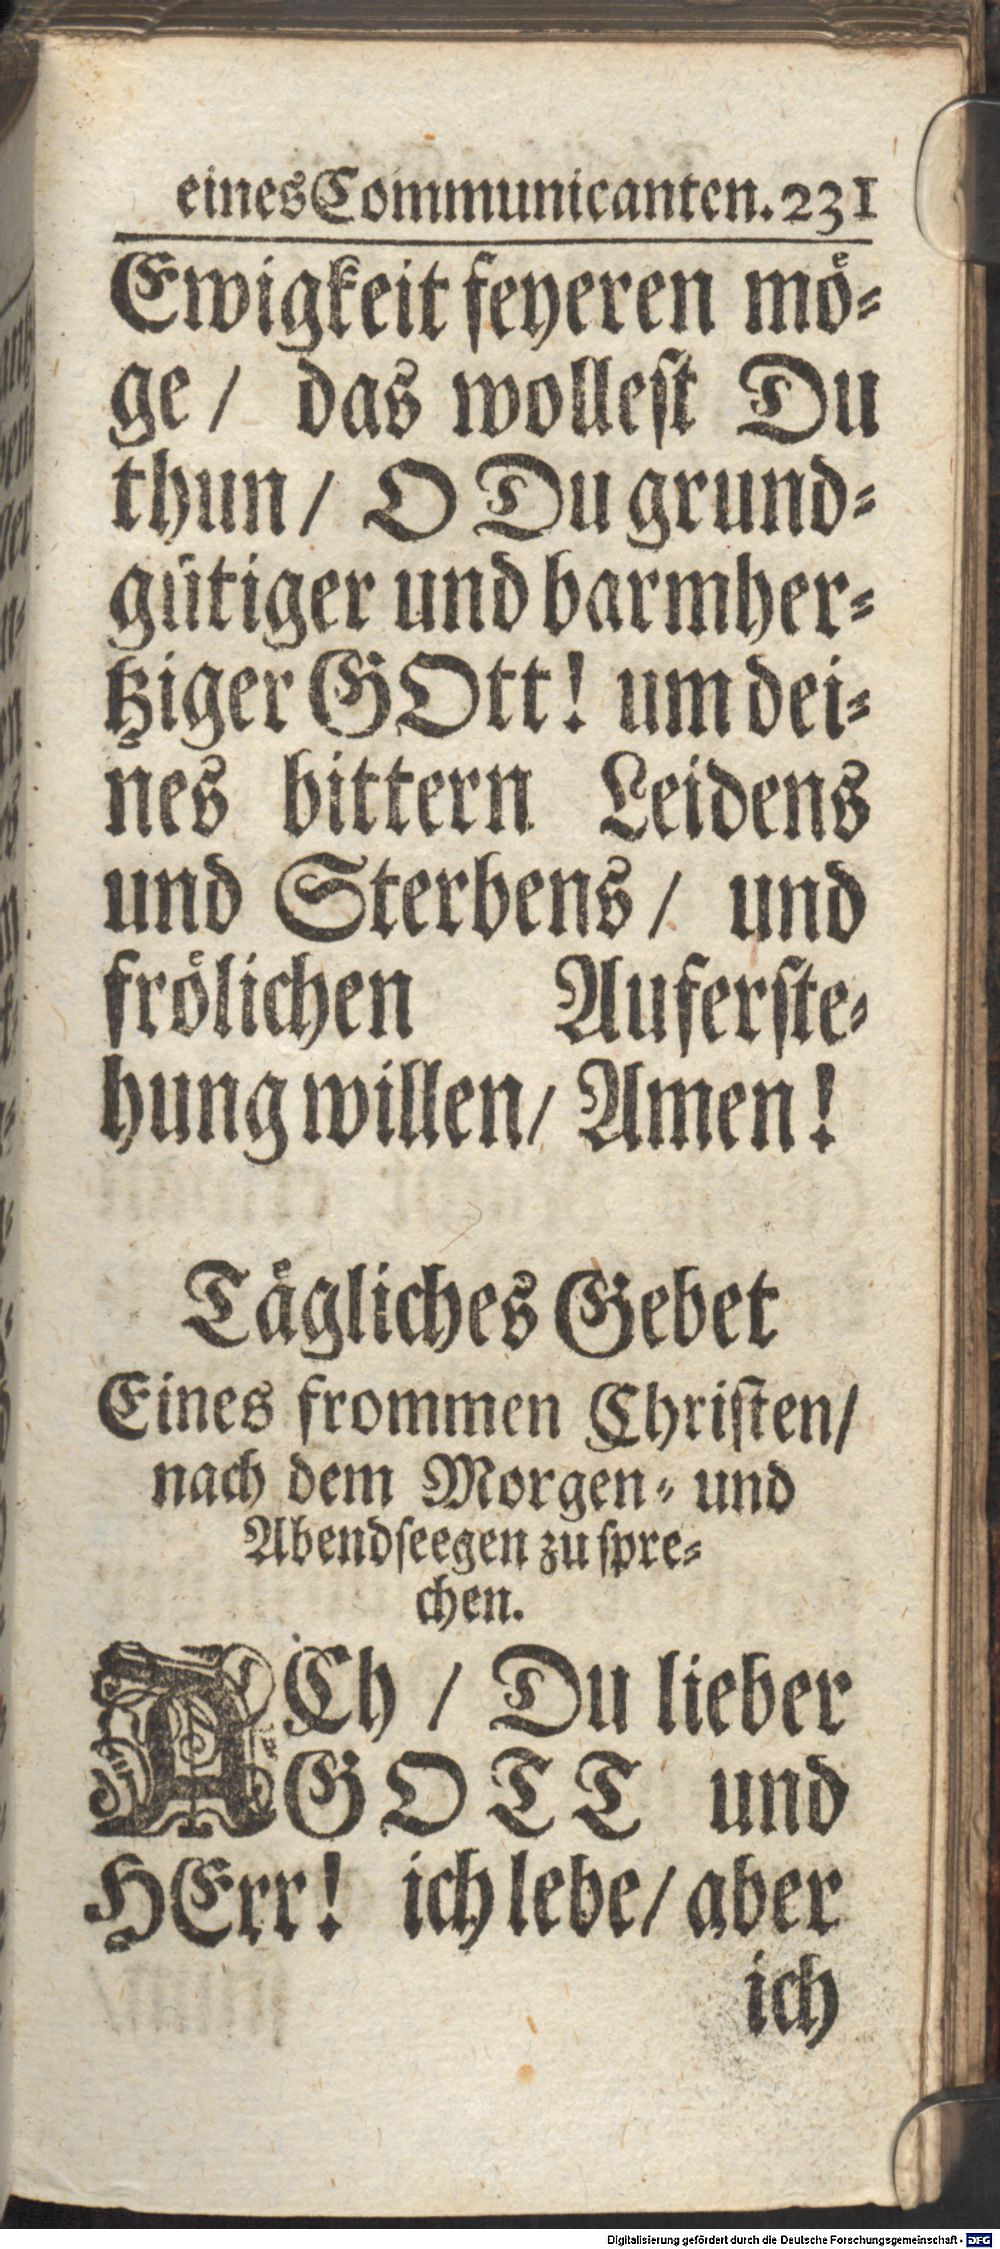 eines Communicanten. 231
Ewigkeit feyeren mö-
ge / das wollest Du
thun / O Du grund-
gütiger und barmher-
tziger GOtt! um dei-
nes bittern Leidens
und Sterbens / und
frölichen Auferste-
hung willen / Amen!
Tägliches Gebet
Eines frommen Christen /
nach dem Morgen- und
Abendseegen zu spre-
chen.
ACh / Du lieber
GOTT und
HErr! ich lebe / aber
ich
Digitalisierung gefördert durch die Deutsche Forschungsgemeinschaft - DFG